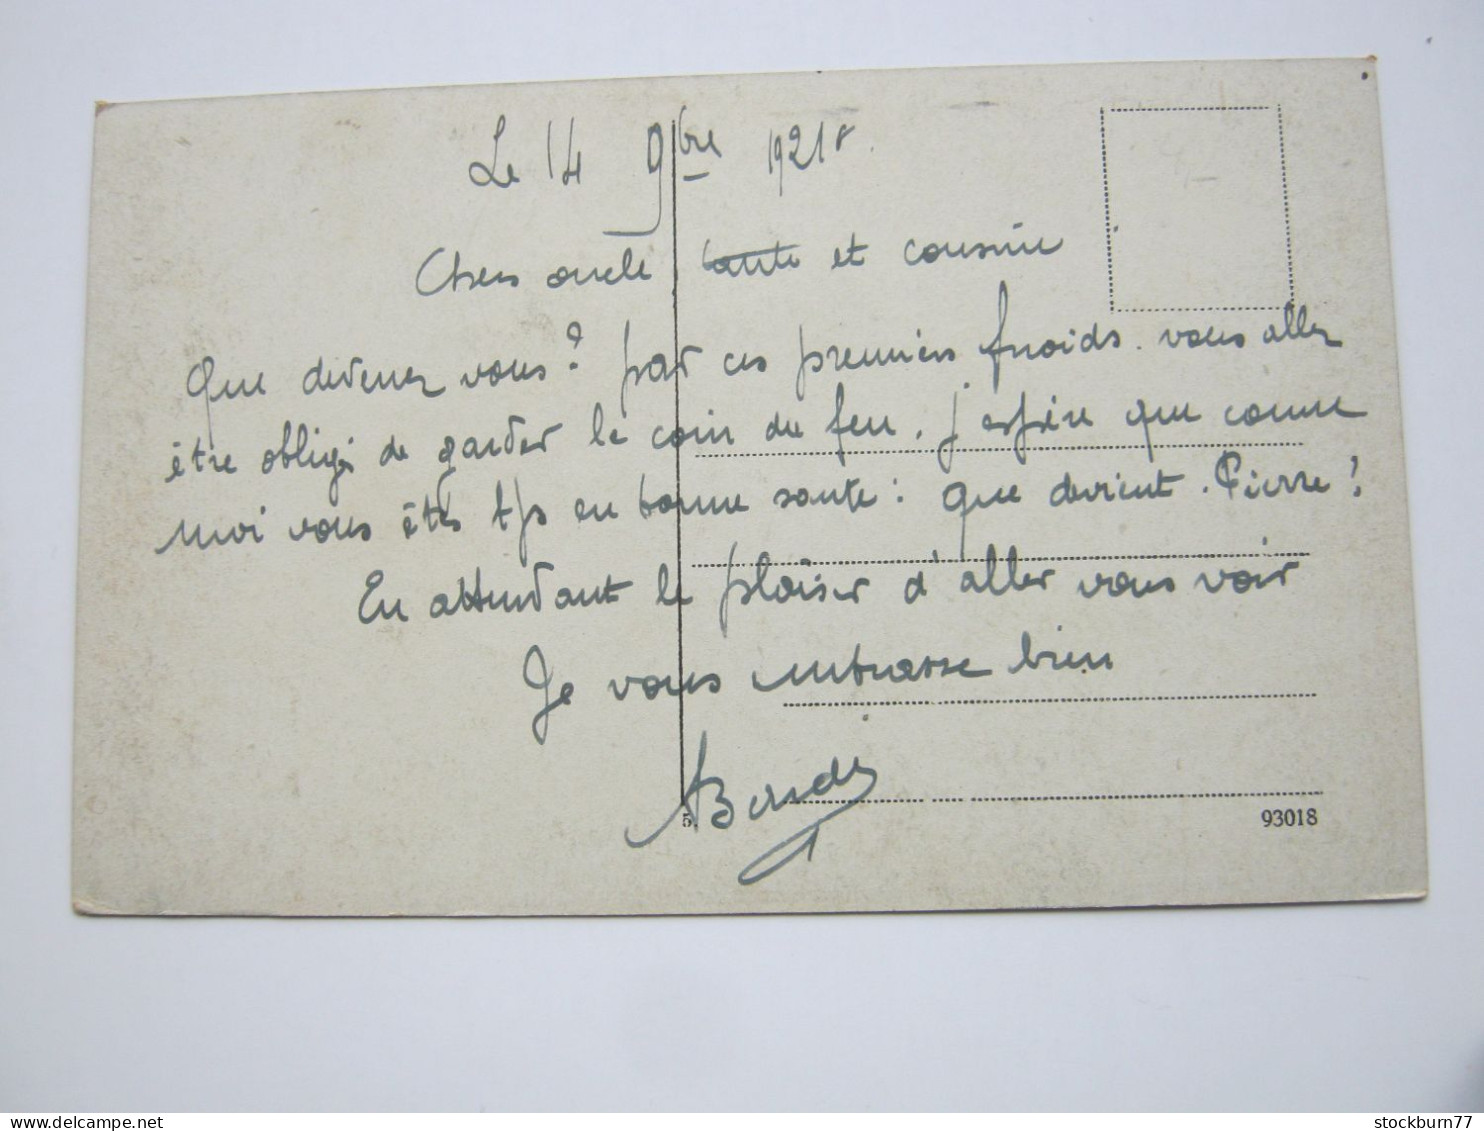 Le 14 9bre 1921
Chers oncle tante et cousin
Que devenez vous? par ces premiers froids. vous allez
être obligé de garder le coin du feu. j'espère que comme
moi vous êtes tjs en bonne sante: que devient. Pierre?
En attendant le plaisir d'aller vous voir
Je vous embrasse bien
5.
93018
stockburn77